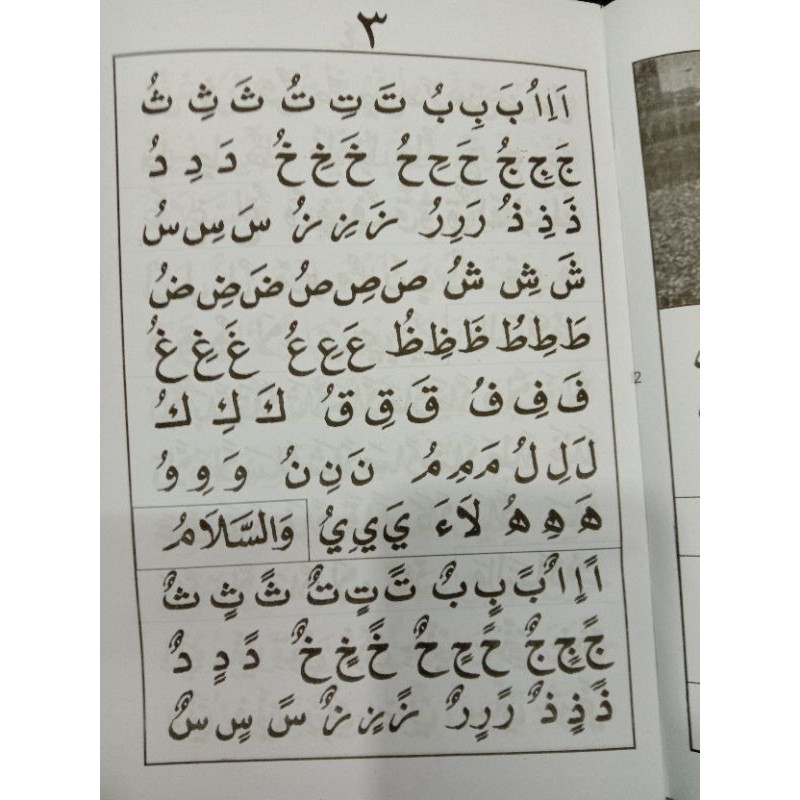 ٣
اَ اِ اُ بَ بِ بُ تَ تِ تُ ثَ ثِ ثُ
جَ جِ جُ حَ حِ حُ خَ خِ خُ دَ دِ دُ
ذَ ذِ ذُ رَ رِ رُ زَ زِ زُ سَ سِ سُ
شَ شِ شُ صَ صِ صُ ضَ ضِ ضُ
طَ طِ طُ ظَ ظِ ظُ عَ عِ عُ غَ غِ غُ
فَ فِ فُ قَ قِ قُ كَ كِ كُ
لَ لِ لُ مَ مِ مُ نَ نِ نُ وَ وِ وُ
هَ هِ هُ لَا ءَ يَ يِ يُ وَالسَّلَامُ
اً اٍ اٌ بً بٍ بٌ تً تٍ تٌ ثً ثٍ ثٌ
جً جٍ جٌ حً حٍ حٌ خً خٍ خٌ دً دٍ دٌ
ذً ذٍ ذٌ رً رٍ رٌ زً زٍ زٌ سً سٍ سٌ
2